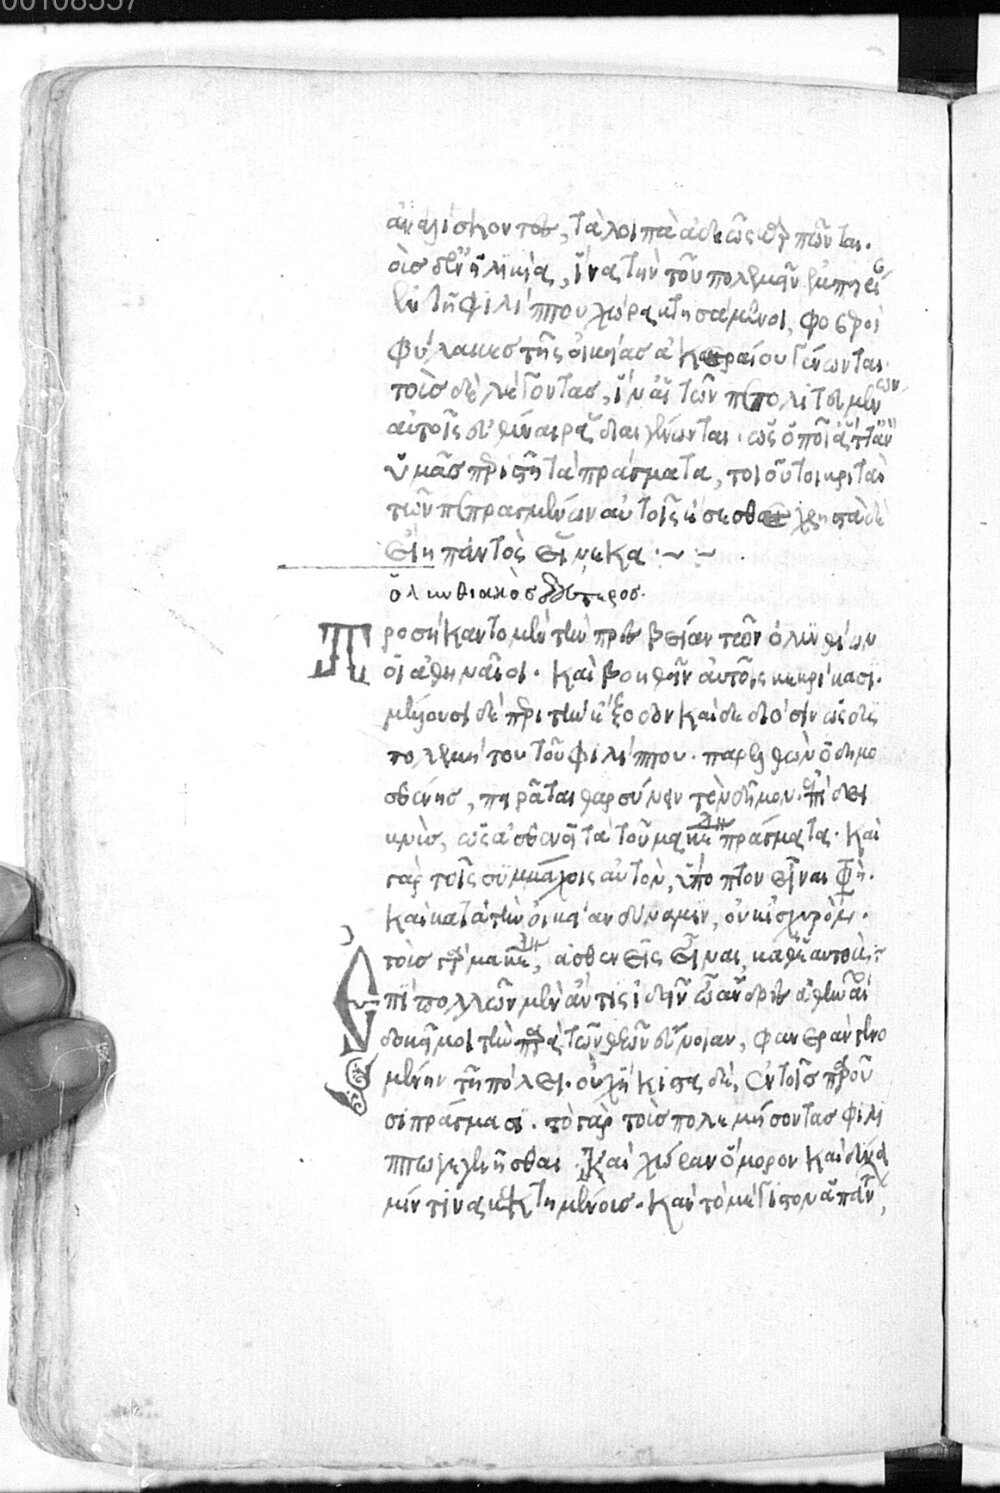 00108557
ἀναλίσκοντας, τὰ λοιπὰ ἀδεῶς καρπῶνται·
τοὺς δ' ἐν ἡλικίᾳ, ἵνα τὴν τοῦ πολεμεῖν ἐμπειρί
ἐν τῇ φιλίππου χώρᾳ κτησάμενοι, φοβεροὶ
φύλακες τῆς οἰκείας ἀκεραίου γένωνται·
τοὺς δὲ λέγοντας, ἵν' αἱ τῶν πεπολιτευμένων
αὐτοῖς εὔθυναι ῥᾴδιαι γένωνται· ὡς ὁποῖ' ἄττ' ἂν
ὑμᾶς περιστῇ τὰ πράγματα, τοιοῦτοι κριταὶ
τῶν πεπραγμένων αὐτοῖς ἔσεσθε χρηστὰ δὲ
εἴη παντὸς εἵνεκα ·~ ~ ·
ὀλυνθιακὸς δεύτερος·
Προσήκαντο μὲν τὴν πρεσβείαν τῶν ὀλυνθίων
οἱ ἀθηναῖοι· καὶ βοηθεῖν αὐτοῖς κεκρίκασι·
μέλλουσι δὲ περὶ τὴν ἔξοδον καὶ δεδιόσιν ὡς δυς
πολεμήτου τοῦ φιλίππου· παρελθὼν ὁ δημο
σθένης, πειρᾶται θαρσύνειν τὸν δῆμον· ἐπιδει
κνὺς, ὡς ἀσθενῆ τὰ τοῦ μακεδόνος πράγματα· καὶ
γὰρ τοῖς συμμάχοις αὐτὸν, ὕποπτον εἶναι φησὶ·
καὶ κατὰ τὴν οἰκείαν δύναμιν, οὐκ ἰσχυρόν·
τοὺς γὰρ μακεδόνας, ἀσθενεῖς εἶναι καθ' ἑαυτούς:
Ἐπὶ πολλῶν μὲν ἄν τις ἰδεῖν ὦ ἄνδρες ἀθηναῖοι
δοκεῖ μοι τὴν παρὰ τῶν θεῶν εὔνοιαν, φανερὰν γινο
μένην τῇ πόλει· οὐχ ἥκιστα δὲ, ἐν τοῖς παροῦ
σι πράγμασι· τὸ γὰρ τοὺς πολεμήσοντας φιλί
ππῳ γεγενῆσθαι καὶ χώραν ὅμορον καὶ δύνα
μίν τινα κεκτημένους· καὶ τὸ μέγιστον ἁπάντ